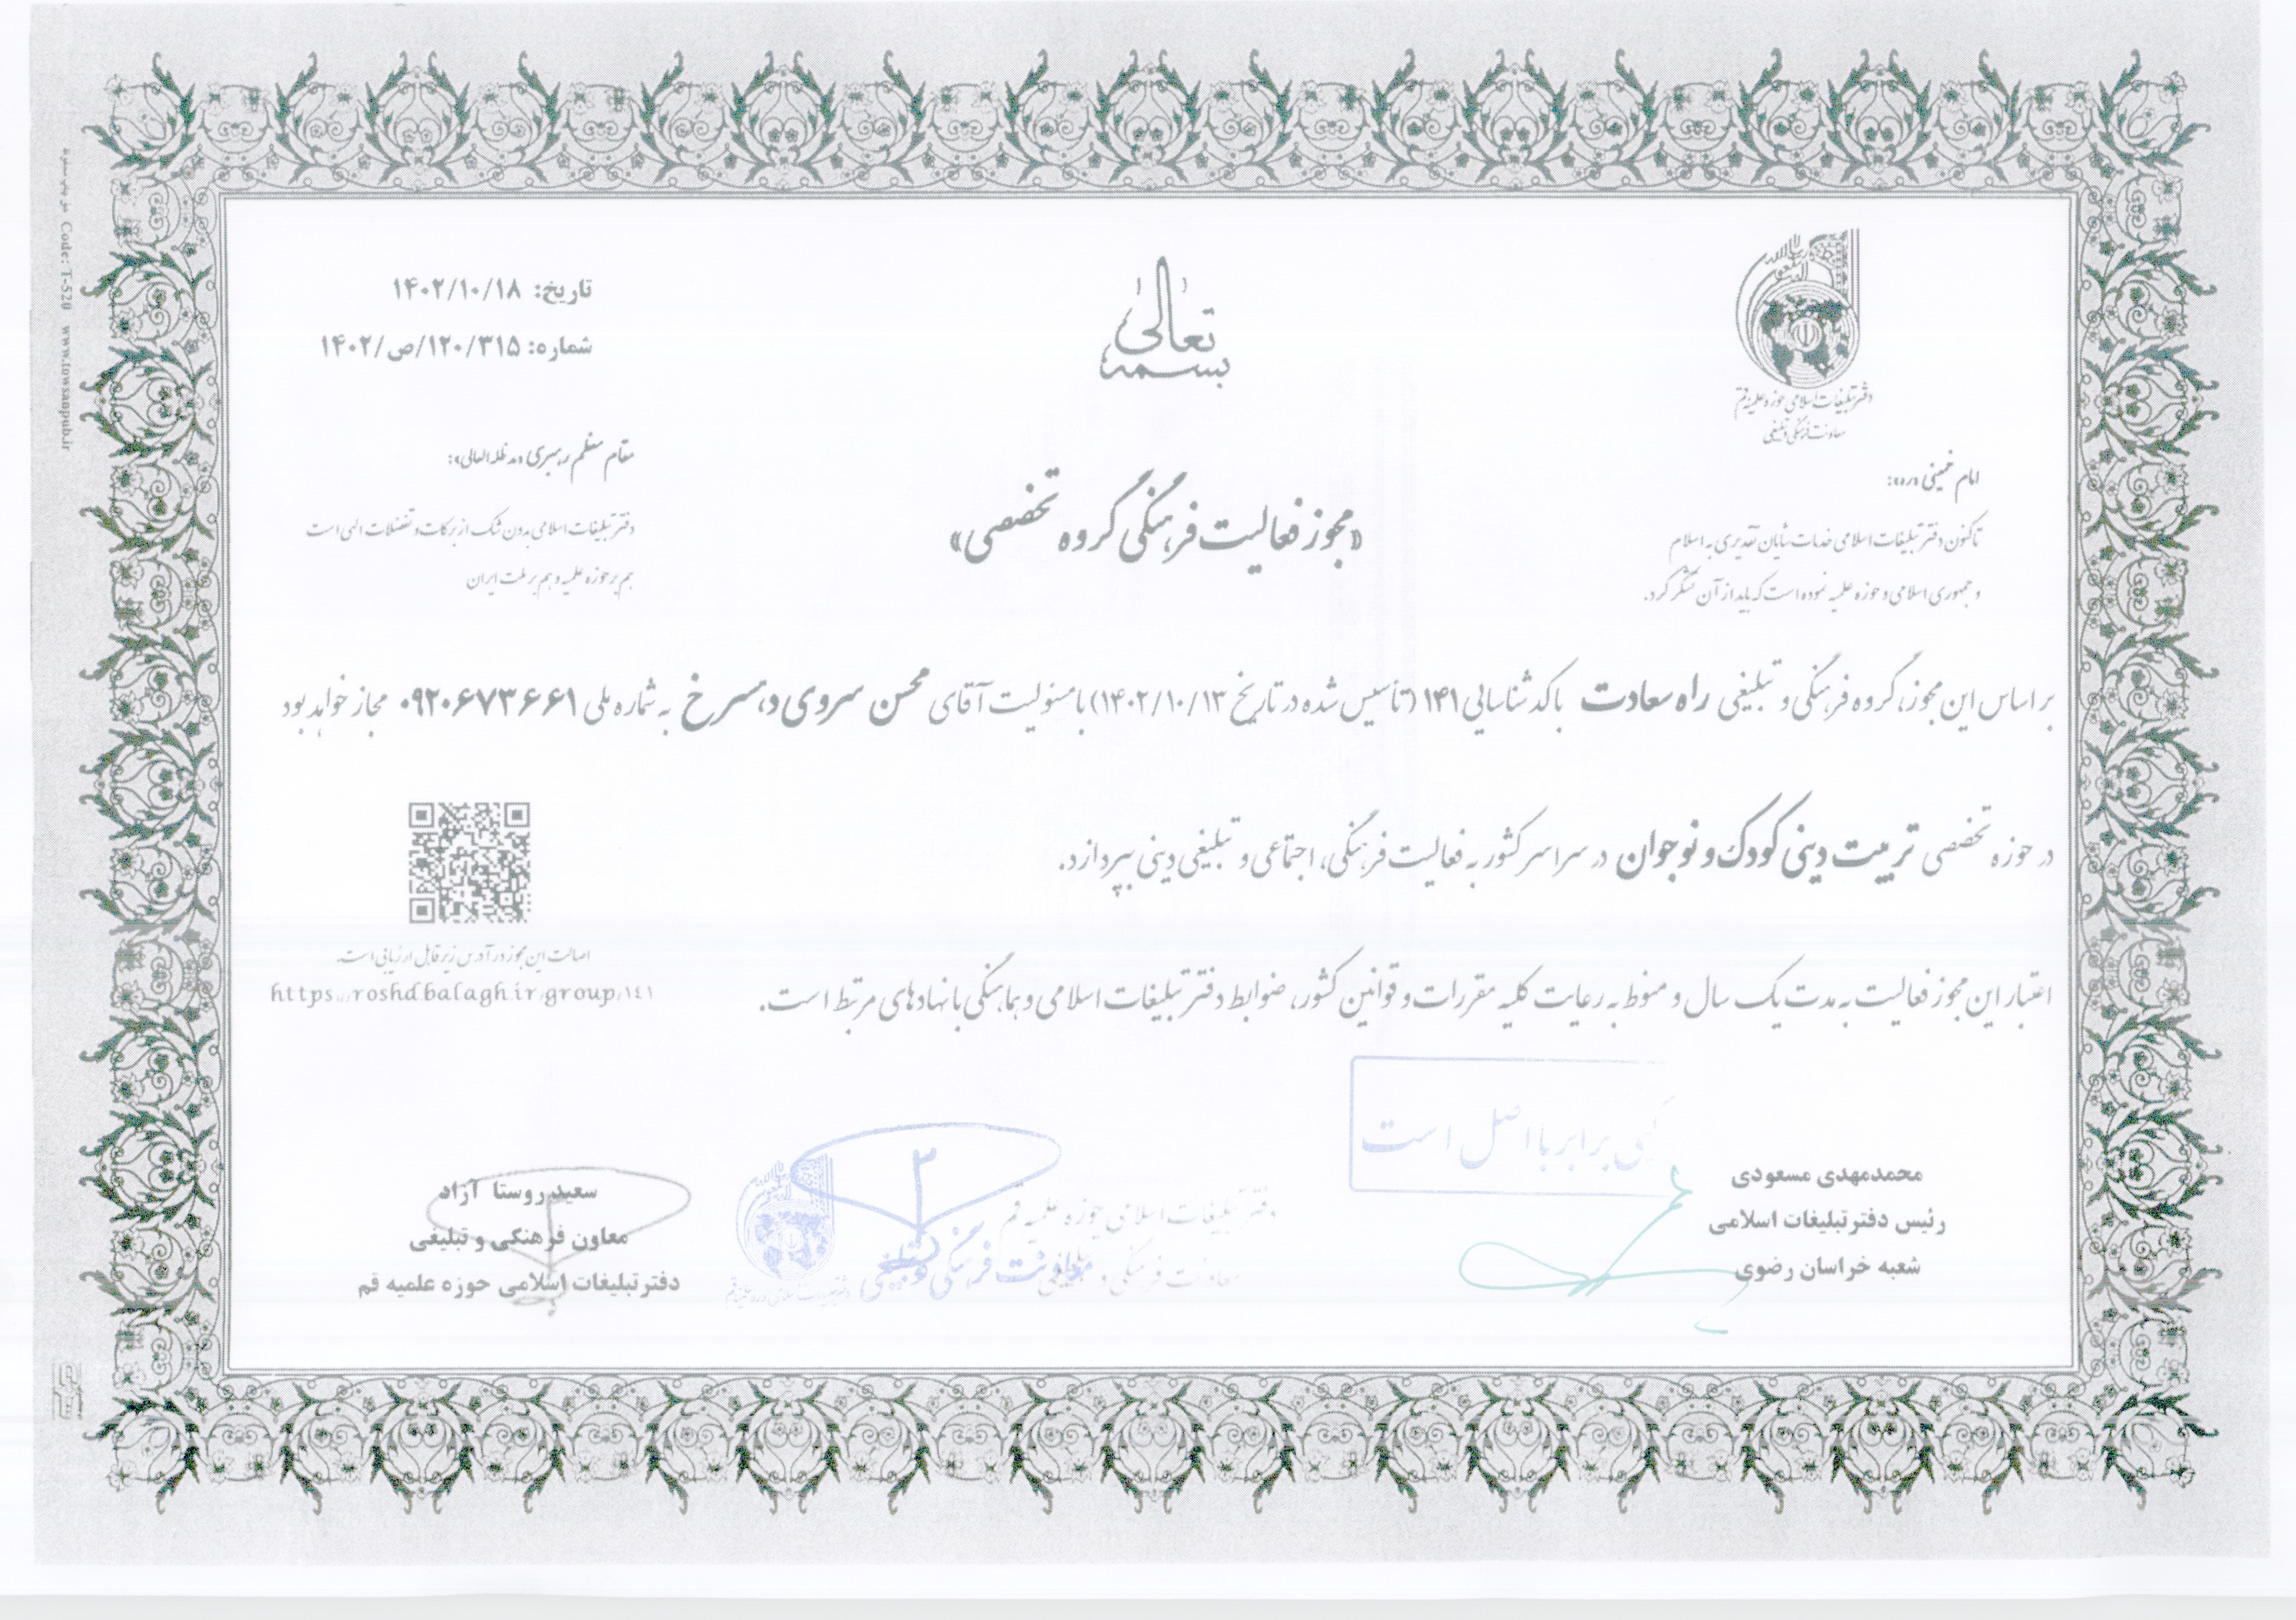 بسمه تعالی
تاریخ: ۱۴۰۲/۱۰/۱۸
شماره: ۱۲۰/۳۱۵/ص/۱۴۰۲
دفتر تبلیغات اسلامی حوزه علمیه قم
معاونت فرهنگی و تبلیغی
امام خمینی «ره»:
تاکنون دفتر تبلیغات اسلامی خدمات شایان تقدیری به اسلام
و جمهوری اسلامی و حوزه علمیه نموده است که باید از آن تشکر کرد.
مقام معظم رهبری «مد ظله العالی»:
دفتر تبلیغات اسلامی بدون شک از برکات و تفضلات الهی است
هم بر حوزه علمیه و هم بر ملت ایران
«مجوز فعالیت فرهنگی گروه تخصصی»
بر اساس این مجوز، گروه فرهنگی و تبلیغی راه سعادت با کد شناسایی ۱۴۱ (تأسیس شده در تاریخ ۱۴۰۲/۱۰/۱۳) با مسئولیت آقای محسن سروی دهسرخ به شماره ملی ۰۹۲۰۶۷۳۶۶۱ مجاز خواهد بود
در حوزه تخصصی تربیت دینی کودک و نوجوان در سراسر کشور به فعالیت فرهنگی، اجتماعی و تبلیغی دینی بپردازد.
اعتبار این مجوز فعالیت به مدت یک سال و منوط به رعایت کلیه مقررات و قوانین کشور، ضوابط دفتر تبلیغات اسلامی و هماهنگی با نهادهای مرتبط است.
اصالت این مجوز در آدرس زیر قابل ارزیابی است.
https://roshd.balagh.ir/group/۱٤۱
کپی برابر با اصل است
محمدمهدی مسعودی
رئیس دفتر تبلیغات اسلامی
شعبه خراسان رضوی
دفتر تبلیغات اسلامی حوزه علمیه قم
معاونت فرهنگی و تبلیغی
معاونت فرهنگی و تبلیغی
سعید روستا آزاد
معاون فرهنگی و تبلیغی
دفتر تبلیغات اسلامی حوزه علمیه قم
Code: T-520 www.towsanpub.ir